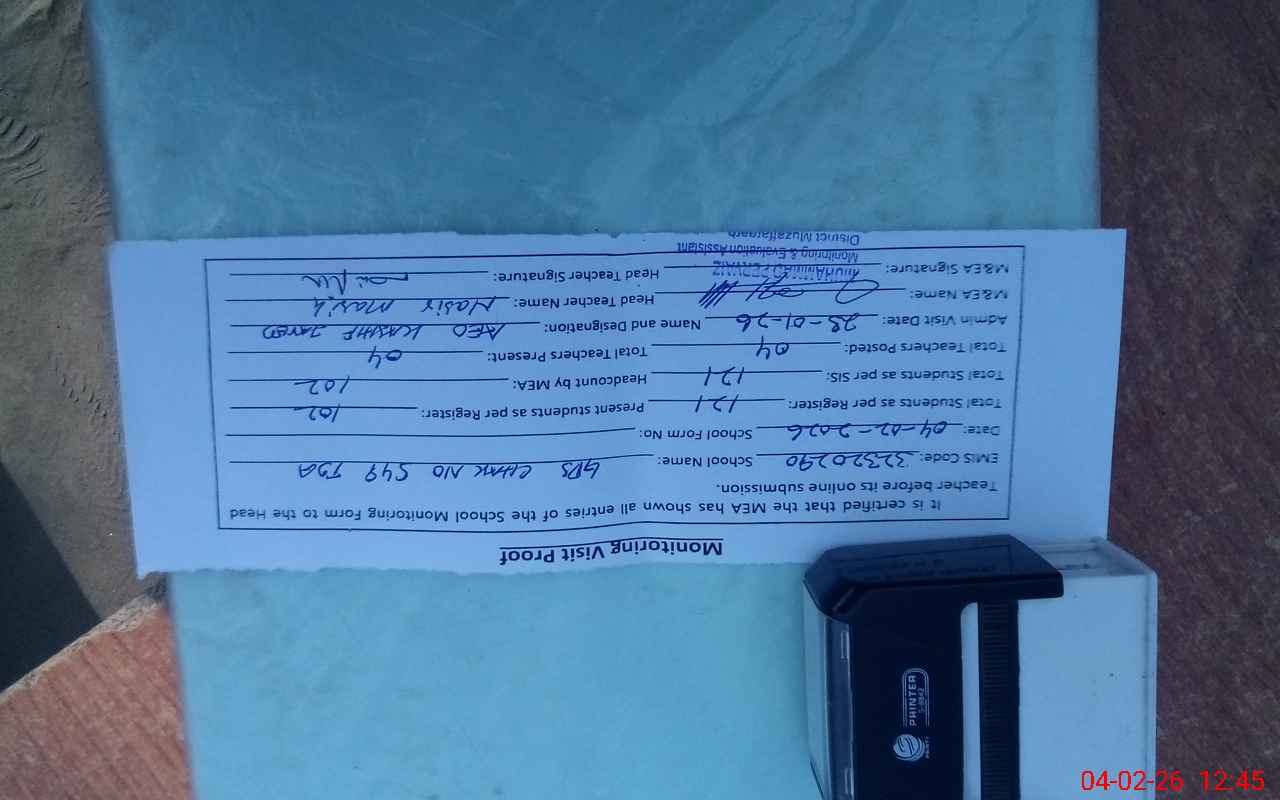 Monitoring Visit Proof
It is certified that the MEA has shown all entries of the School Monitoring Form to the Head
Teacher before its online submission.
EMIS Code: 32320290 School Name: GPS CHAK NO 549 TDA
Date: 04-02-2026 School Form No:
Total Students as per Register: 121 Present students as per Register: 102
Total Students as per SIS: 121 Headcount by MEA: 102
Total Teachers Posted: 04 Total Teachers Present: 04
Admin Visit Date: 28-01-26 Name and Designation: AEO KASHIF JAVED
M&EA Name: Head Teacher Name: Nasir Masih
M&EA Signature: Head Teacher Signature:
MUHAMMAD PERVAIZ
Monitoring & Evaluation Assistant
District Muzaffargarh
PRINTER
04-02-26 12:45